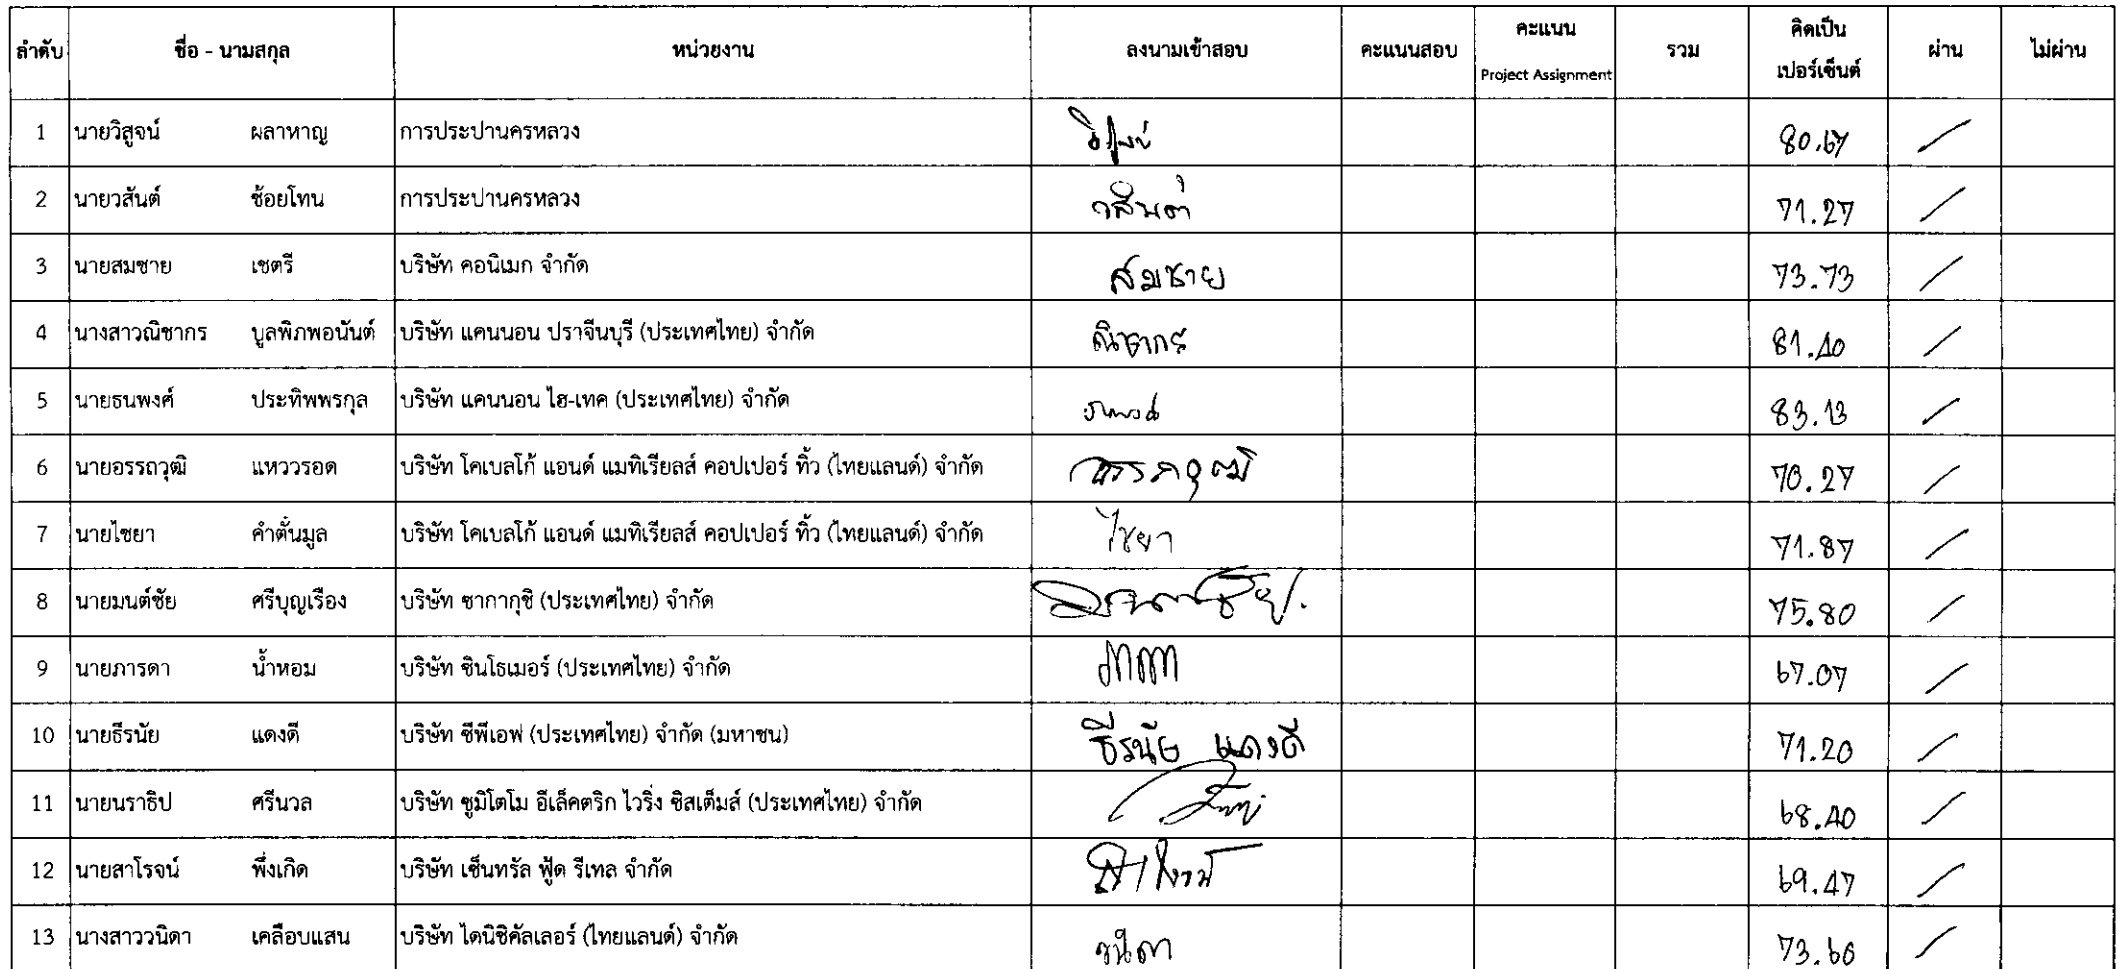 ลำดับ ชื่อ - นามสกุล หน่วยงาน ลงนามเข้าสอบ คะแนนสอบ คะแนน Project Assignment รวม คิดเป็นเปอร์เซ็นต์ ผ่าน ไม่ผ่าน
1 นายวิสูจน์ ผลาหาญ การประปานครหลวง 80.67 /
2 นายวสันต์ ช้อยโทน การประปานครหลวง วสันต์ 71.27 /
3 นายสมชาย เชตรี บริษัท คอนิเมก จำกัด สมชาย 73.73 /
4 นางสาวณิชากร บูลพิภพอนันต์ บริษัท แคนนอน ปราจีนบุรี (ประเทศไทย) จำกัด ณิชากร 81.40 /
5 นายธนพงศ์ ประทิพพรกุล บริษัท แคนนอน ไฮ-เทค (ประเทศไทย) จำกัด 83.13 /
6 นายอรรถวุฒิ แหววรอด บริษัท โคเบลโก้ แอนด์ แมทิเรียลส์ คอปเปอร์ ทิ้ว (ไทยแลนด์) จำกัด อรรถวุฒิ 70.27 /
7 นายไชยา คำตั๋นมูล บริษัท โคเบลโก้ แอนด์ แมทิเรียลส์ คอปเปอร์ ทิ้ว (ไทยแลนด์) จำกัด ไชยา 71.87 /
8 นายมนต์ชัย ศรีบุญเรือง บริษัท ซากากุชิ (ประเทศไทย) จำกัด 75.80 /
9 นายภารดา น้ำหอม บริษัท ซินโธเมอร์ (ประเทศไทย) จำกัด 67.07 /
10 นายธีรนัย แดงดี บริษัท ซีพีเอฟ (ประเทศไทย) จำกัด (มหาชน) ธีรนัย แดงดี 71.20 /
11 นายนราธิป ศรีนวล บริษัท ซูมิโตโม อีเล็คตริก ไวริ่ง ซิสเต็มส์ (ประเทศไทย) จำกัด 68.40 /
12 นายสาโรจน์ พึ่งเกิด บริษัท เซ็นทรัล ฟู้ด รีเทล จำกัด 69.47 /
13 นางสาววนิดา เคลือบแสน บริษัท ไดนิชิคัลเลอร์ (ไทยแลนด์) จำกัด วนิดา 73.66 /